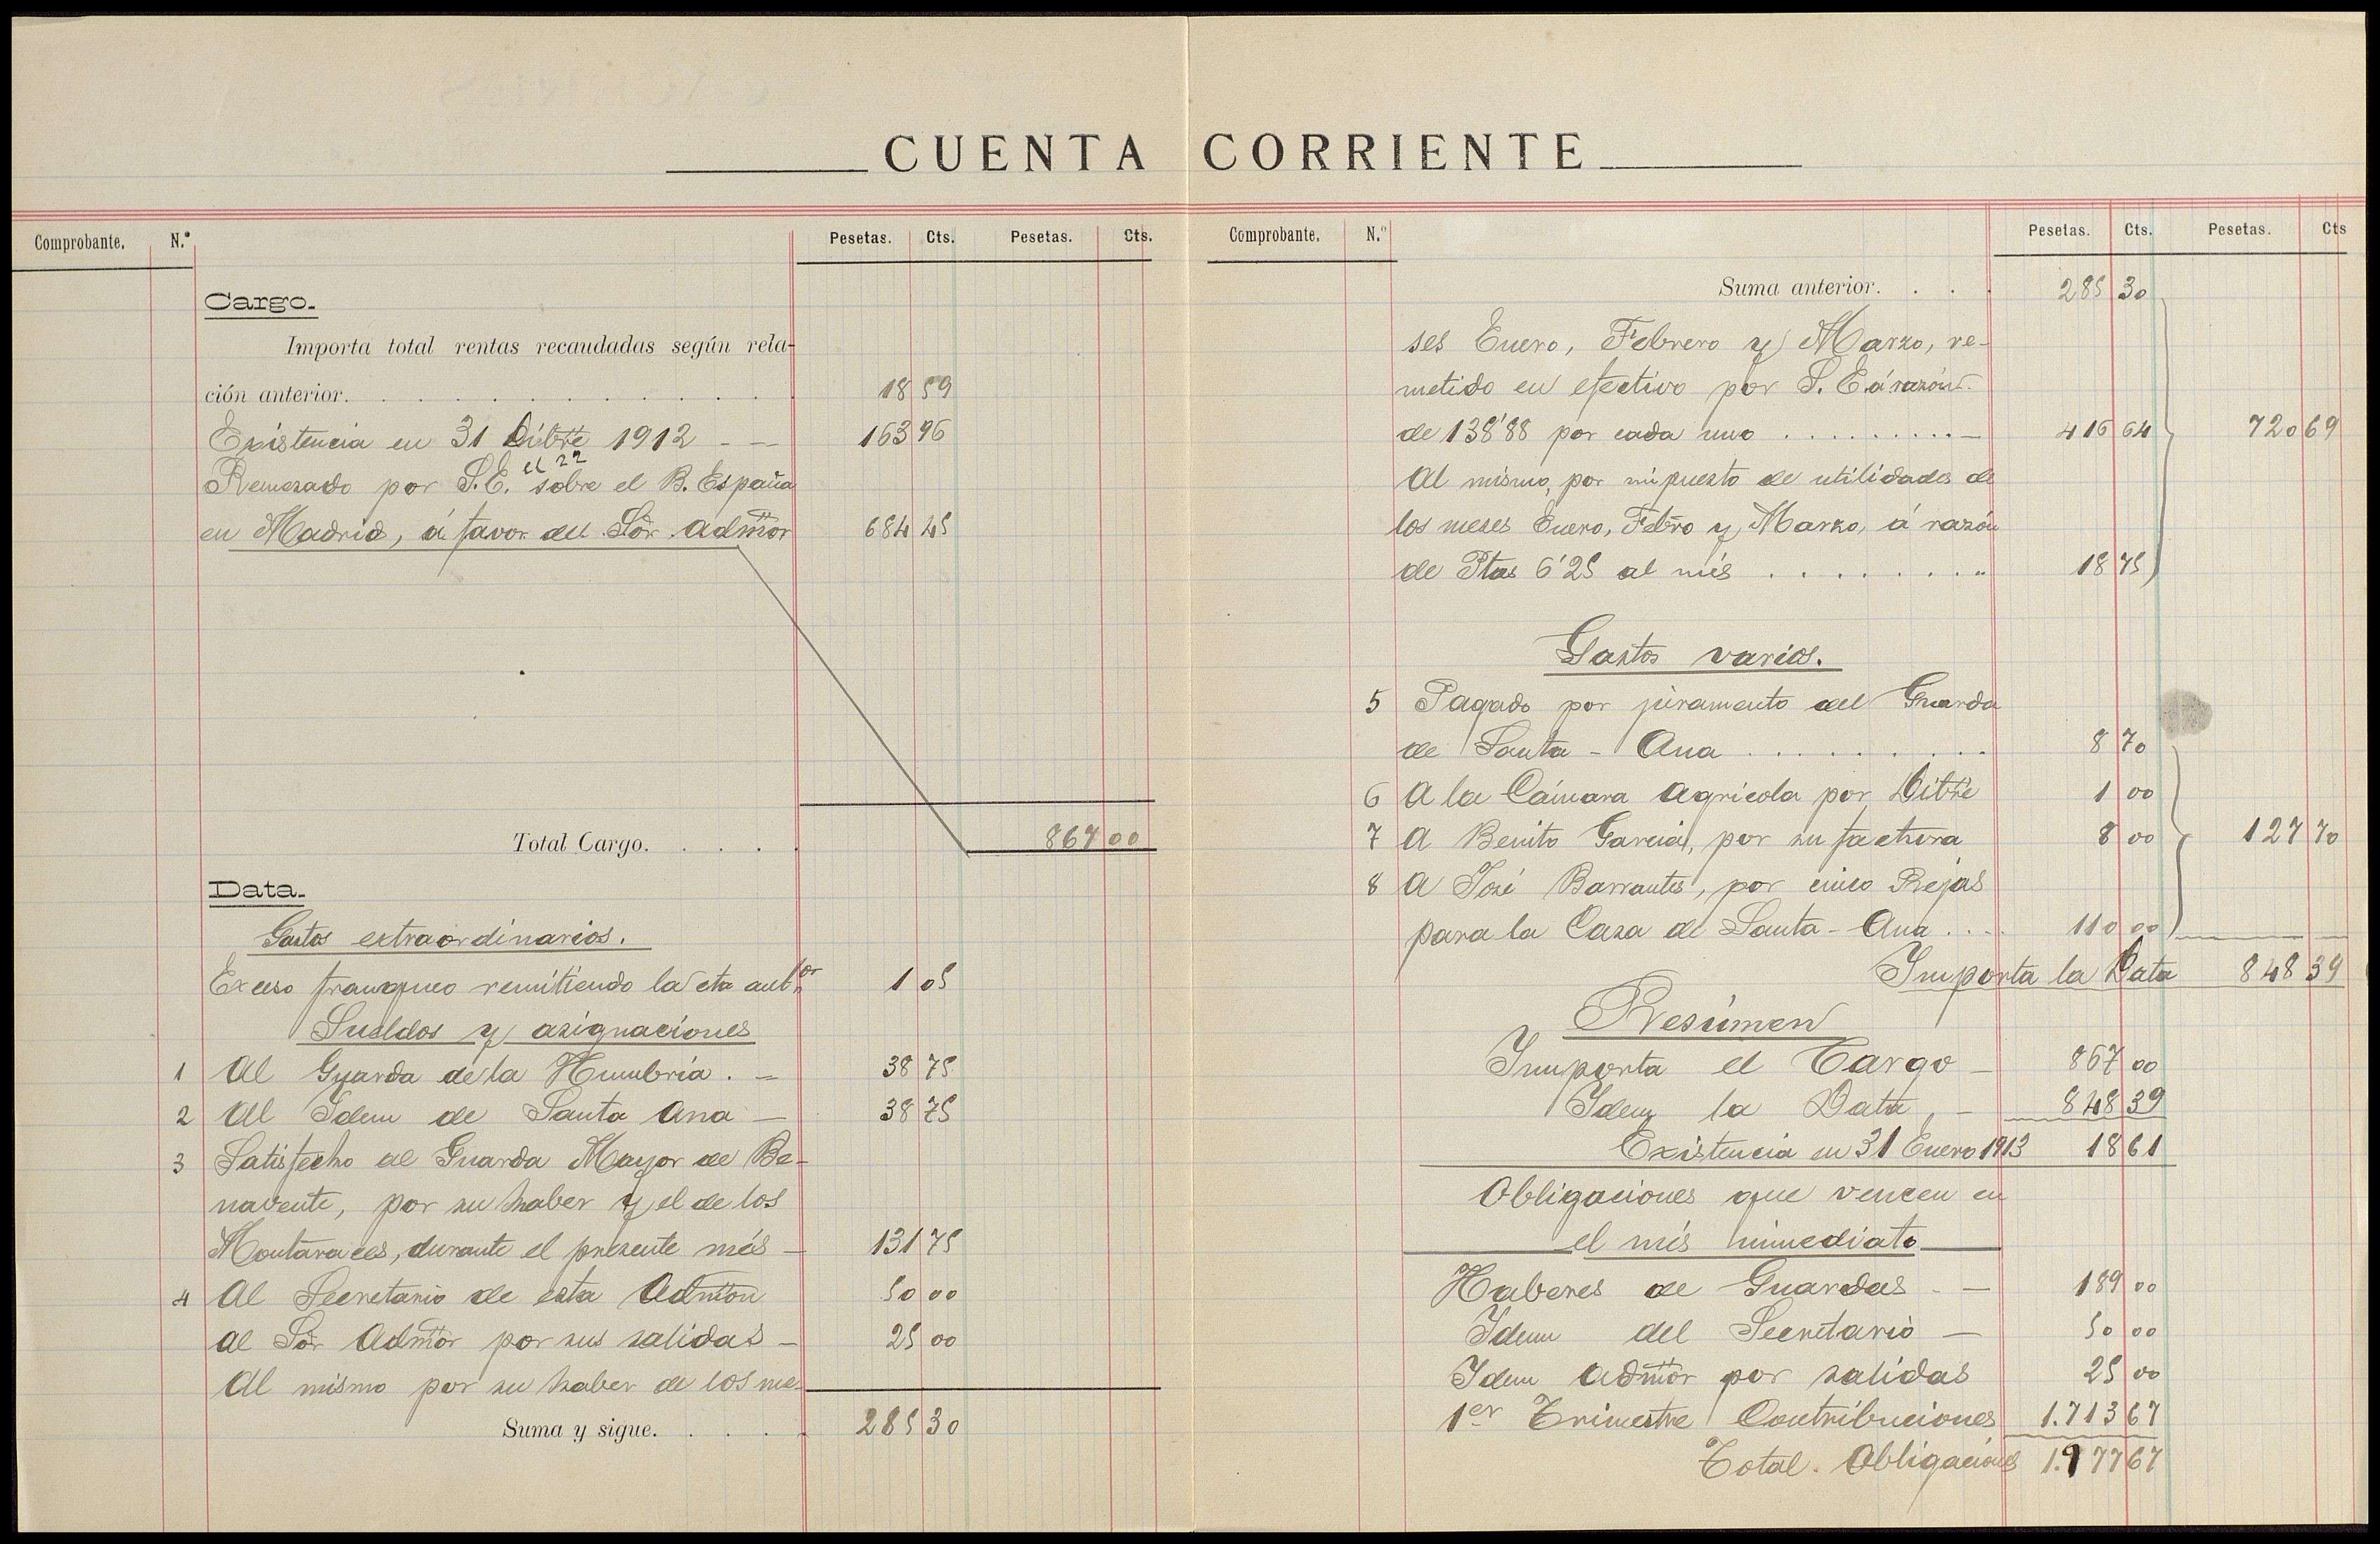 CUENTA CORRIENTE
Comprobante. N.º Pesetas. Cts. Pesetas. Cts.
Cargo.
Importa total rentas recaudadas según rela-
ción anterior. 18 59
Existencia en 31 Dibre 1912 163 96
el 22
Remesado por S.E. sobre el B. España
en Madrid, á favor del Sor. Admor 684 45
Total Cargo. 867 00
Data.
Gastos extraordinarios.
Exceso franqueo remitiendo la cta antor 1 05
Sueldos y asignaciones
1 Al Guarda de la Humbría. 38 75
2 Al Idem de Santa Ana 38 75
3 Satisfecho al Guarda Mayor de Be-
navente, por su haber y el de los
Montaraces, durante el presente més 131 75
4 Al Secretario de esta Admon 50 00
al Sor Admor por sus salidas 25 00
Al mismo por su haber de los me-
Suma y sigue. 285 30
Comprobante. N.º Pesetas. Cts. Pesetas. Cts
Suma anterior. 285 30
ses Enero, Febrero y Marzo, re-
metido en efectivo por S. E. á razón
de 138'88 por cada uno 416 64 720 69
Al mismo, por impuesto de utilidades de
los meses Enero, Febro y Marzo, á razón
de Ptas 6'25 al més 18 75
Gastos varios.
5 Pagado por juramento del Guarda
de Santa-Ana 8 70
6 A la Cámara Agricola por Dibre 1 00
7 A Benito Garcia, por su factura 8 00 127 70
8 A José Barrantes, por cinco Rejas
para la Casa de Santa-Ana 110 00
Importa la Data 848 39
Resúmen
Importa el Cargo 867 00
Idem la Data 848 39
Existencia en 31 Enero 1913 18 61
Obligaciones que vencen en
el més inmediato
Haberes de Guardas 189 00
Idem del Secretario 50 00
Idem Admor por salidas 25 00
1er Trimestre Contribuciones 1.713 67
Total Obligaciones 1.977 67